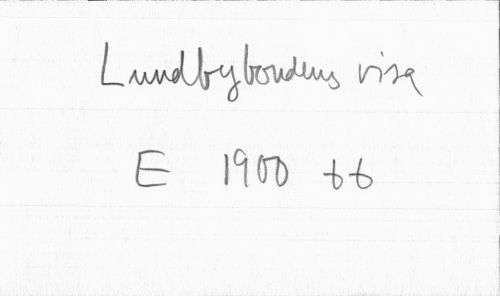 Lundbybondens visa
E 1900 tt